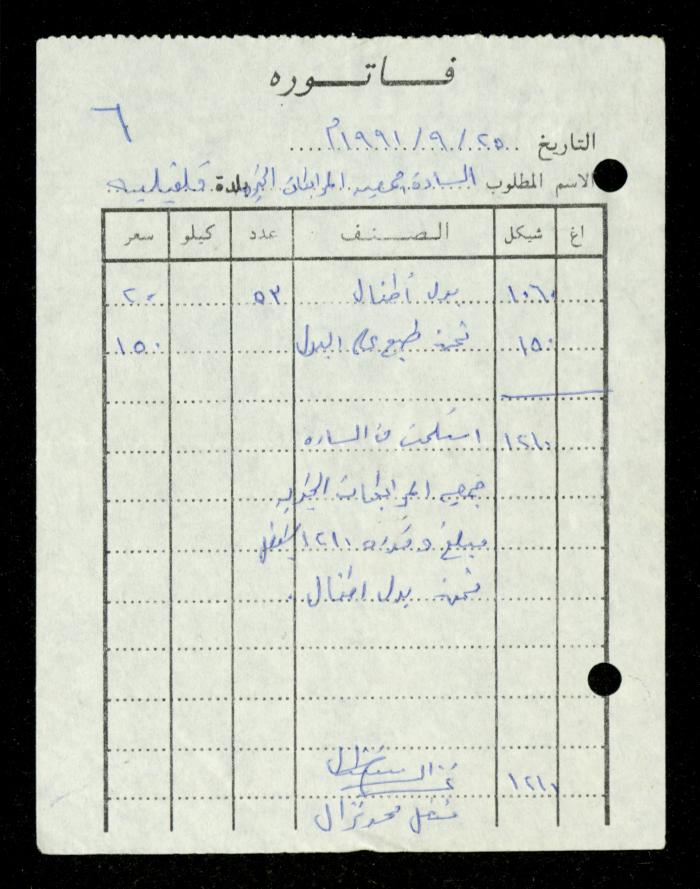 فاتوره
٦
التاريخ ٢٥/٩/١٩٩١م
الاسم المطلوب السادة جمعيه المرابطات الخيريه بلدة قلقيليه
اغ شيكل الصنف عدد كيلو سعر
١٠٦٠ بدل أطفال ٥٣ ٢٠
١٥٠ ثمن طبع على البدل ١٥٠
١٢١٠ استلمت من الساده
جمعيه المرابطات الخيريه
مبلغ وقدره ١٢١٠ شيقل
ثمن بدل اطفال .
١٢١٠
محمد نزال